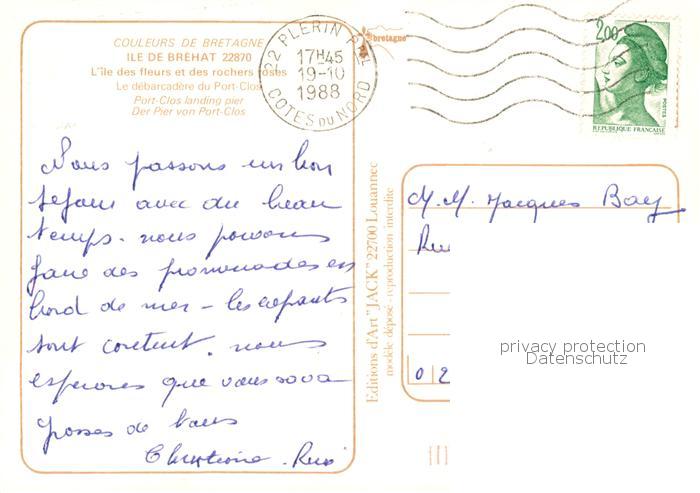 COULEURS DE BRETAGNE
ILE DE BREHAT 22870
L'île des fleurs et des rochers roses
Le débarcadère du Port-Clos
Port-Clos landing pier
Der Pier von Port-Clos
bretagne
22 PLERIN PAL
17H45
19-10
1988
COTES DU NORD
2,00
POSTES
REPUBLIQUE FRANCAISE
Nous passons un bon
séjour avec du beau
temps. nous pouvons
faire des promenades en
bord de mer - les enfants
sont content. nous
espérons que vous
Grosses de tous
Christine
Editions d'Art "JACK" 22700 Louannec
modèle déposé - reproduction interdite
M.M. Jacques Bay
Ru
0 2
privacy protection
Datenschutz